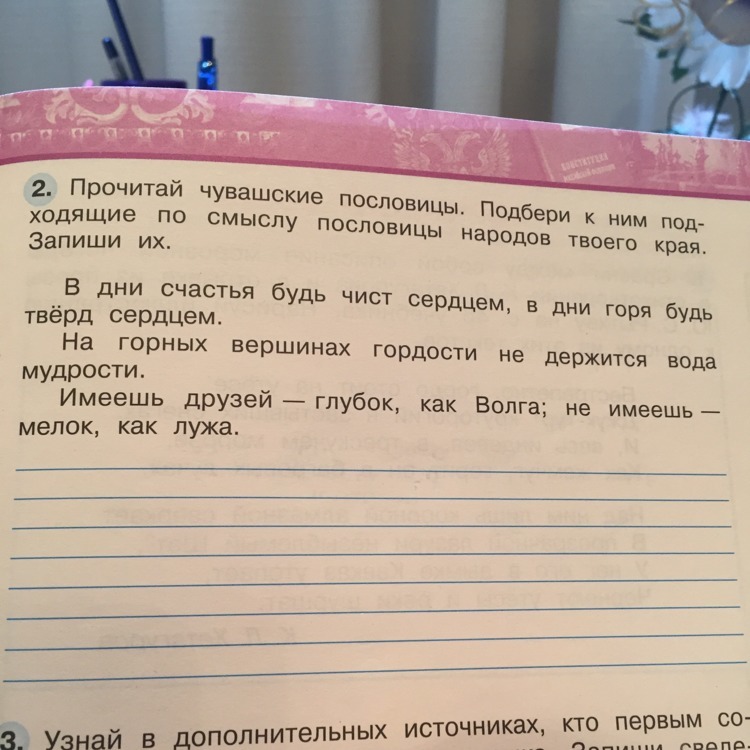 2. Прочитай чувашские пословицы. Подбери к ним под-
ходящие по смыслу пословицы народов твоего края.
Запиши их.
В дни счастья будь чист сердцем, в дни горя будь
твёрд сердцем.
На горных вершинах гордости не держится вода
мудрости.
Имеешь друзей — глубок, как Волга; не имеешь —
мелок, как лужа.
3. Узнай в дополнительных источниках, кто первым со-